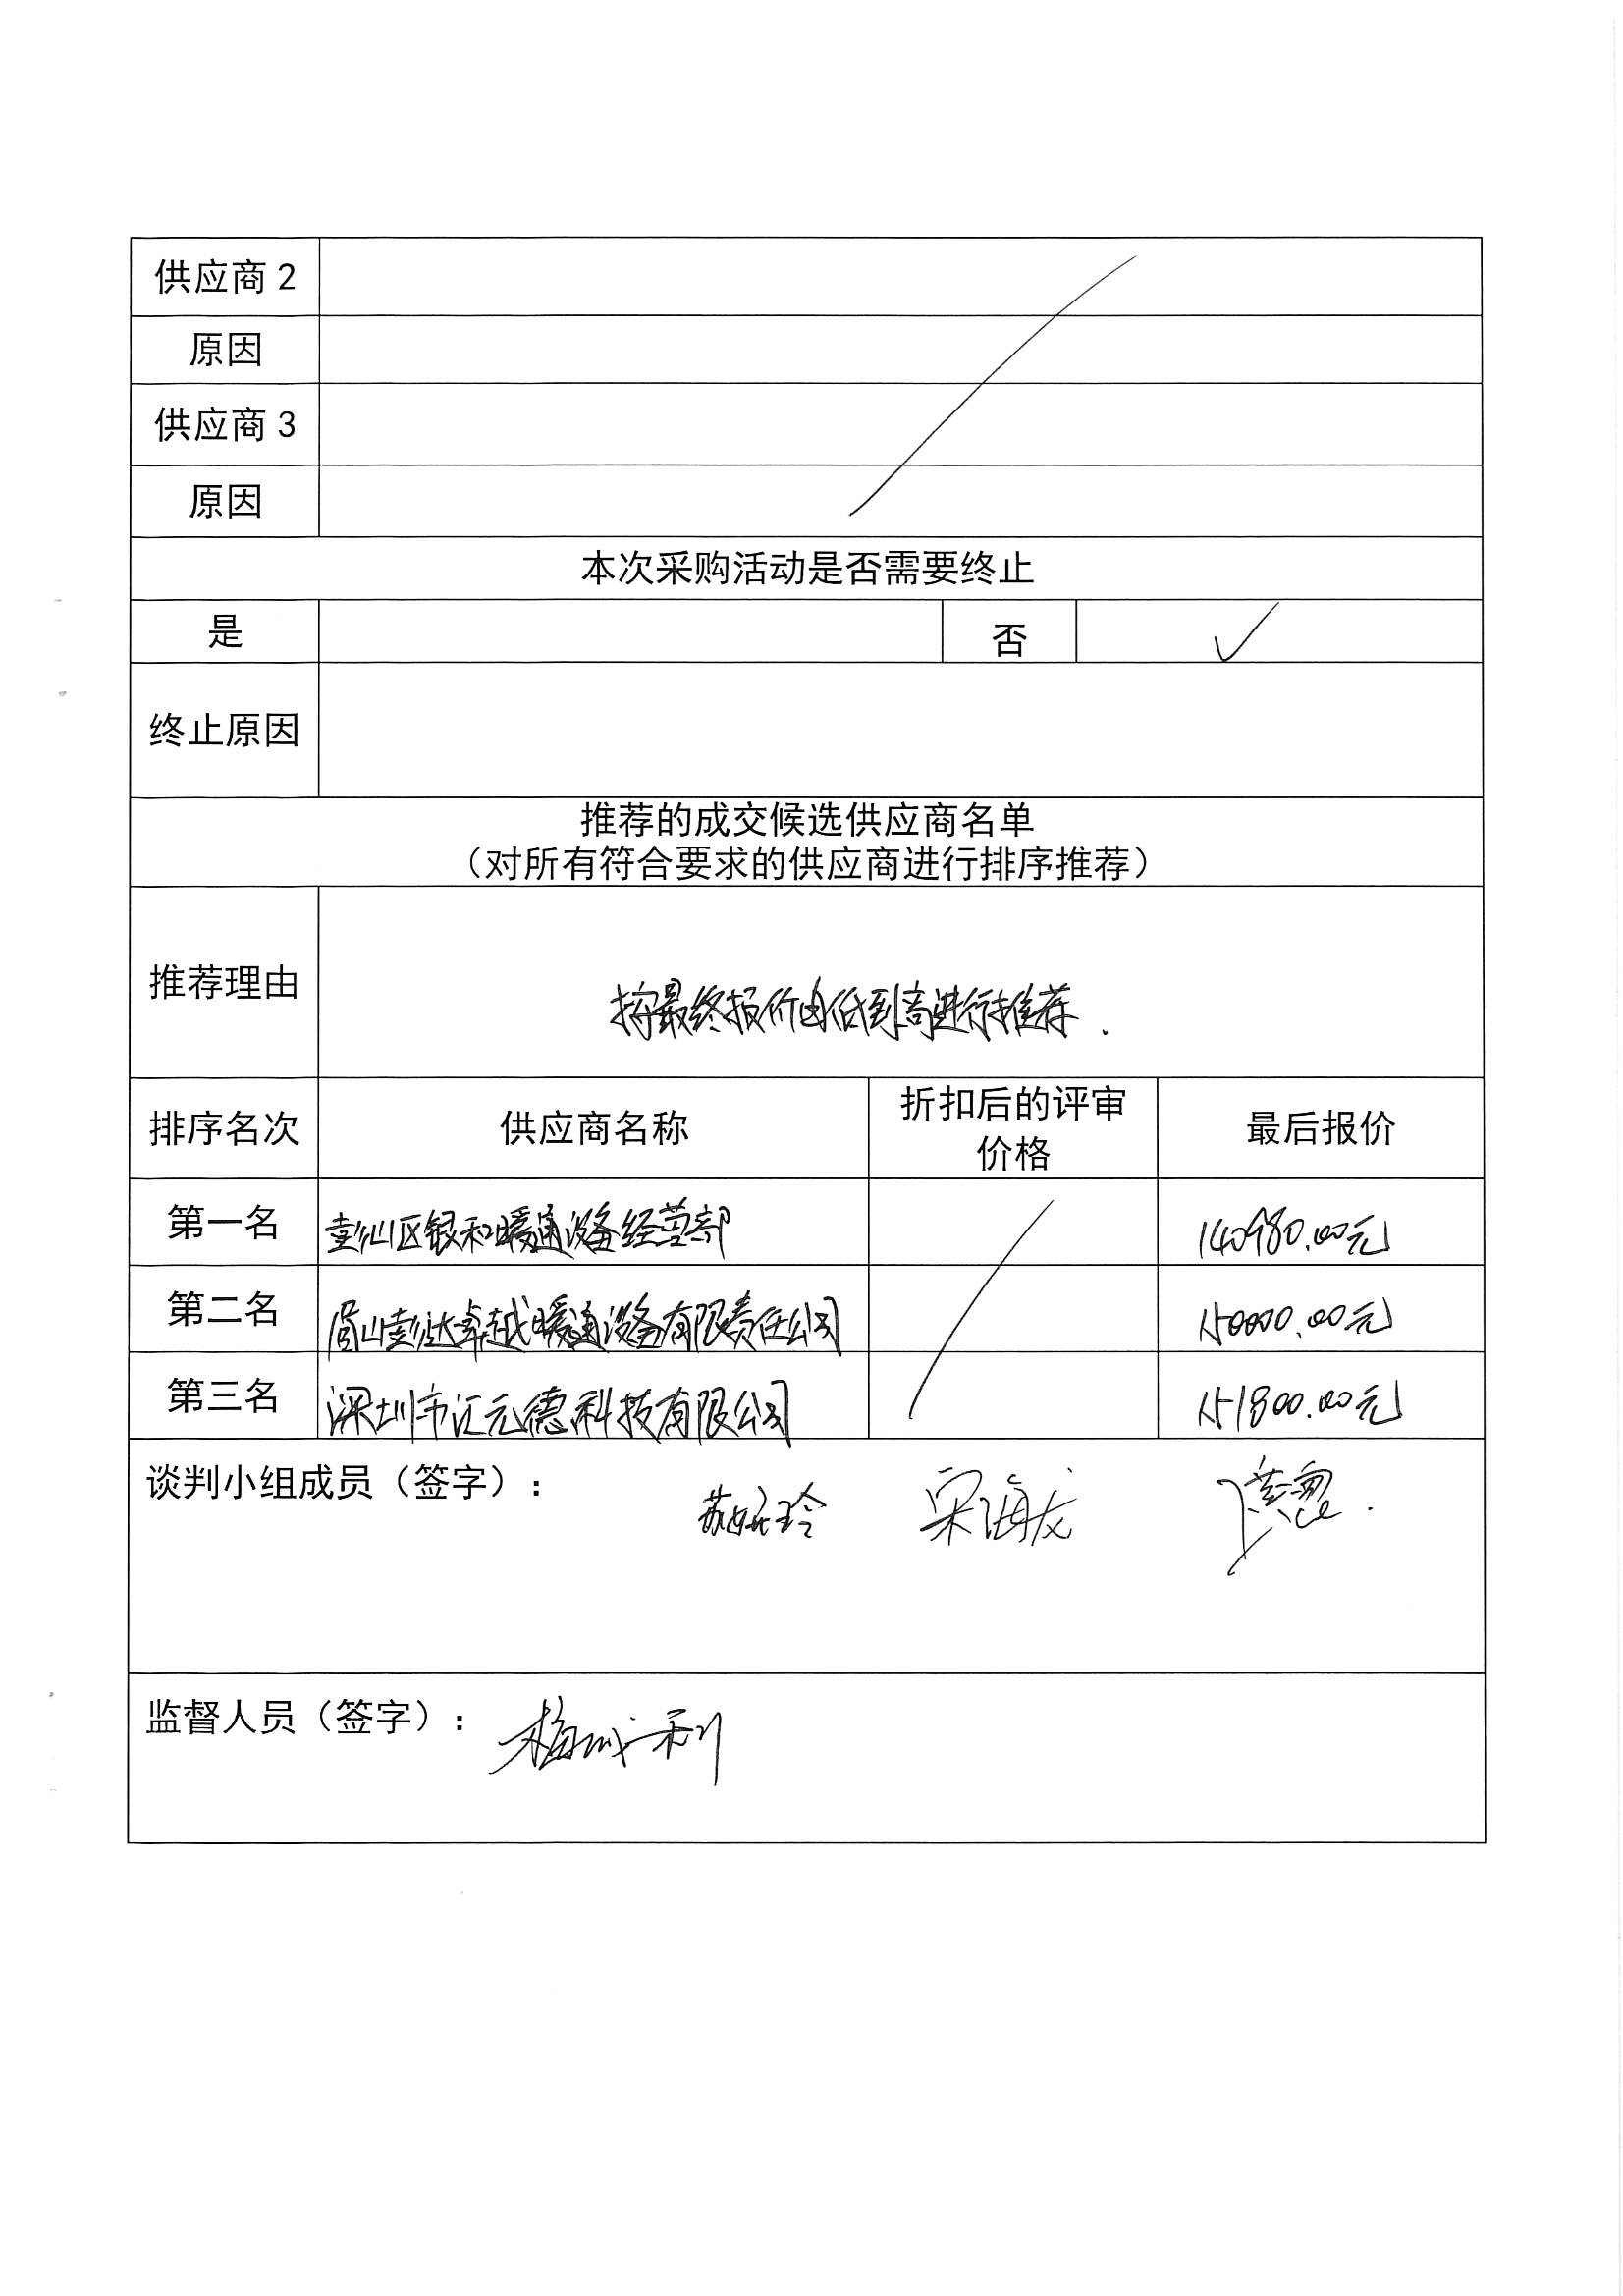 供应商2
原因
供应商3
原因
本次采购活动是否需要终止
是 否 ✓
终止原因
推荐的成交候选供应商名单
（对所有符合要求的供应商进行排序推荐）
推荐理由 按最终报价由低到高进行推荐.
排序名次 供应商名称 折扣后的评审价格 最后报价
第一名 彭山区银和暖通设备经营部 140980.00元
第二名 眉山彭达卓越暖通设备有限责任公司 150000.00元
第三名 深圳市汇元德科技有限公司 151800.00元
谈判小组成员（签字）： 宋海龙
监督人员（签字）：